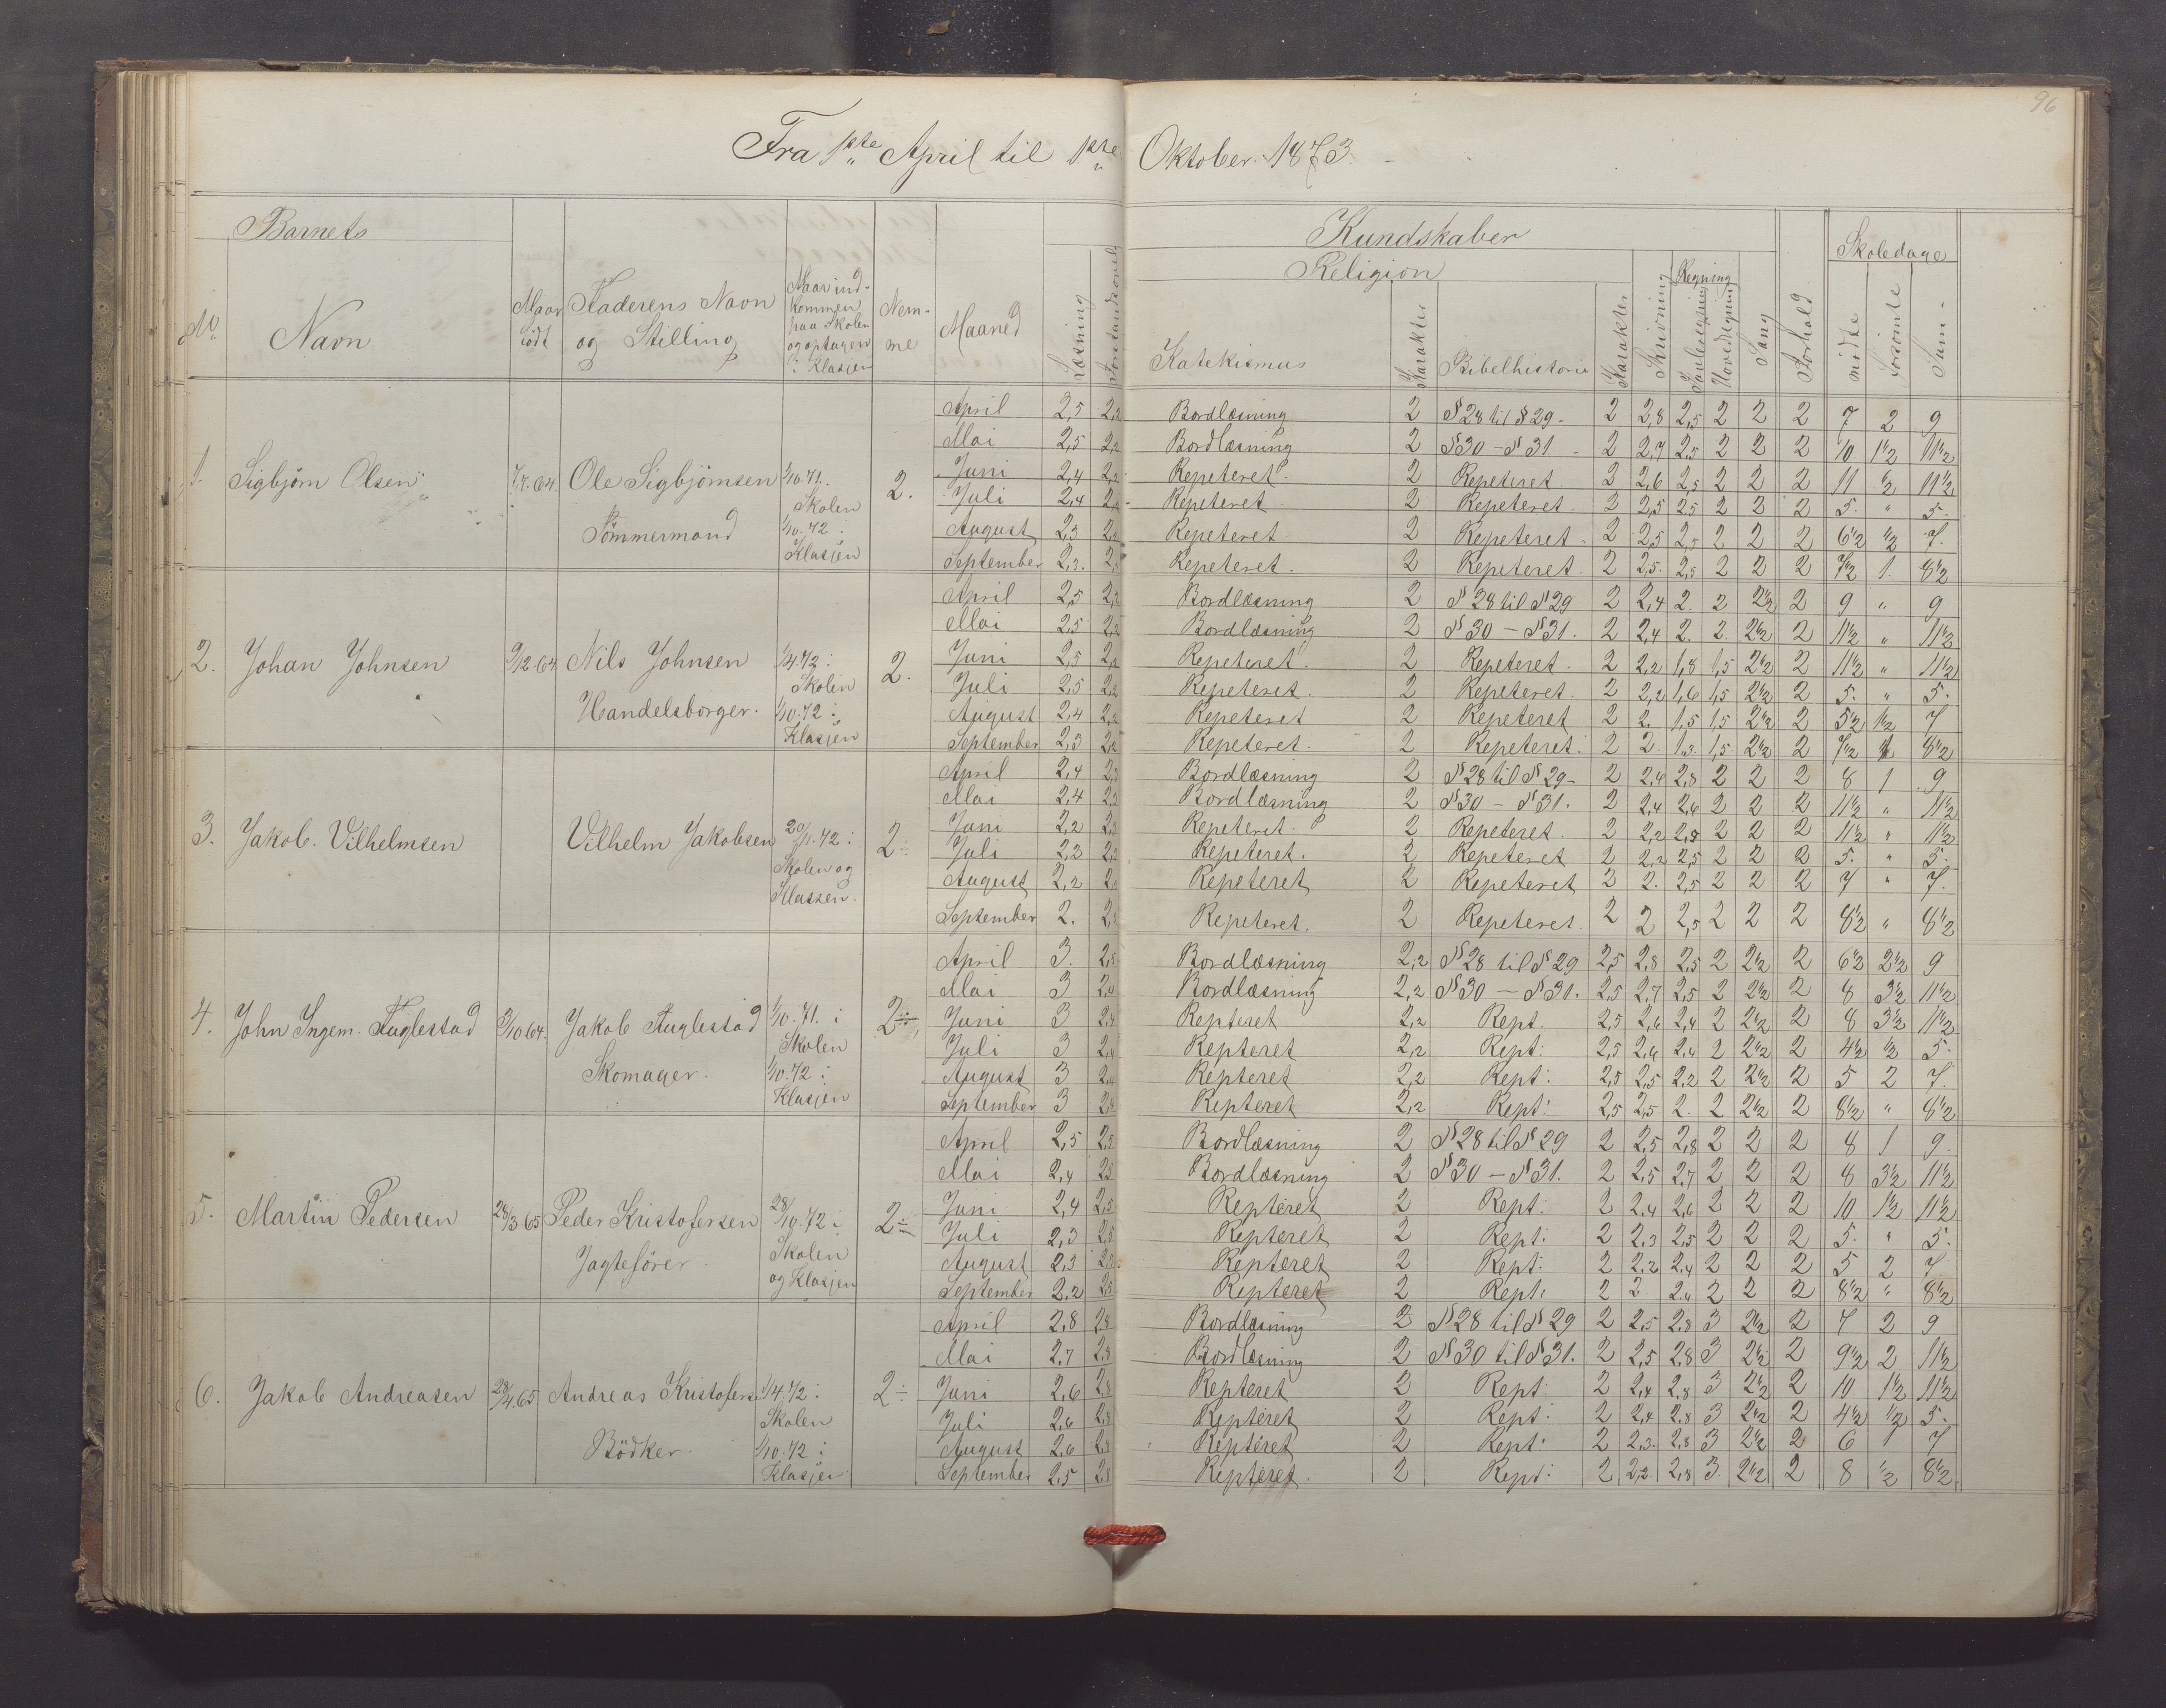 96
Fra 1ste April til 1ste Oktober 1873.
Barnets
Kundskaber
Skoledage
Religion
Regning
No
Navn
Naar født
Faderens Navn og Stilling
Naar ind-
kommen
paa Skolen
og optagen
i Klasjen
Nem-
me
Maaned
Læsning
Forstandsøvels
Katekismus
Karakter
Bibelhistorie
Karakter
Skrivning
Tavleregning
Hovedregning
Sang
Forhold
mødte
forsömte
Sum
1. Sigbjörn Olsen 7/7.64. Ole Sigbjörnsen Tömmermand 1/10.71. i Skolen 1/10.72 i Klasjen 2.
April 2,5 2,2 Bordlæsning 2 § 28 til § 29 2 2,8 2,5 2 2 2 7 2 9
Mai 2,5 2,2 Bordlæsning 2 § 30 – § 31 2 2,7 2,5 2 2 2 10 1½ 11½
Juni 2,4 2,2 Repeteret 2 Repeteret 2 2,6 2,5 2 2 2 11 ½ 11½
Juli 2,4 2,2 Repeteret 2 Repeteret 2 2,5 2,5 2 2 2 5. " 5.
August 2,3 2,2 Repeteret 2 Repeteret 2 2,5 2,5 2 2 2 6½ ½ 7.
September 2,3. Repeteret. 2 Repeteret. 2 2,5. 2,5 2 2 2 7½ 1. 8½
2. Johan Johnsen 9/12.64 Nils Johnsen Handelsborger. 1/4.72 i Skolen 1/10.72 i Klasjen 2.
April 2,5 2,2 Bordlæsning 2 § 28 til § 29 2 2,4 2. 2 2½ 2 9 " 9
Mai 2,5 2,2 Bordlæsning 2 § 30 – § 31. 2 2,4 2. 2. 2½ 2 11½ " 11½
Juni 2,5 2,2 Repeteret. 2 Repeteret. 2 2,2 1,8 1,5 2½ 2 11½ " 11½
Juli 2,5 2,2 Repeteret. 2 Repeteret. 2 2,2 1,6 1,5 2½ 2 5. " 5.
August 2,4 2,2 Repeteret 2 Repeteret 2 2. 1.5 1,5 2½ 2 5½ 1½ 7
September 2,3 2,2 Repeteret. 2 Repeteret. 2 2. 1.3. 1,5. 2½ 2 7½ 1 8½
3. Jakob. Vilhelmsen Vilhelm Jakobsen 20/1.72 i Skolen og Klassen. 2÷
April 2,4 2,2 Bordlæsning 2 § 28 til § 29 2 2,4 2,8 2 2 2 8 1 9
Mai 2,4 2,2 Bordlæsning 2 § 30 – § 31. 2 2,4 2,6 2 2 2 11½ " 11½
Juni 2,2 2,2 Repeteret. 2 Repeteret. 2 2,2 2,5 2 2 2 11½ " 11½
Juli 2,2 2,2 Repeteret. 2 Repeteret 2 2,2 2,5 2 2 2 5. " 5.
August 2,2 Repeteret 2 Repeteret 2 2. 2,5 2 2 2 7 " 7.
September 2. Repeteret. 2 Repeteret. 2 2 2,5 2 2 2 8½ " 8½
4. John Ingem. Fuglestad 3/10 64. Jakob Fuglestad Skomager. 1/10.71. i Skolen 1/10.72 i Klasjen 2÷
April 3. 2,5 Bordlæsning 2,2 § 28 til § 29 2,5 2,8 2,5 2 2½ 2 6½ 2½ 9
Mai 3 2,4 Bordlæsning 2,2 § 30 – § 31. 2,5 2,7 2,5 2 2½ 2 8 3½ 11½
Juni 3 2,4 Repteret 2,2 Rept. 2,5 2,6 2,4 2 2½ 2 8 3½ 11½
Juli 3 2,4 Repteret 2,2 Rept: 2,5 2,6 2,4 2 2½ 2 4½ ½ 5.
August 3 2,4 Repteret 2,2 Rept: 2,5 2,5 2,2 2 2½ 2 5 2 7.
September 3 2,4 Repteret 2,2 Rept: 2,5 2,5 2. 2 2½ 2 8½ " 8½
5. Martin Pedersen 28/3 65 Peder Kristofersen Jagteförer. 28/10.72 i Skolen og Klasjen 2÷
April 2,5 2,5 Bordlæsning 2 § 28 til § 29 2 2,5 2,8 2 2 2 8 1 9
Mai 2,4 2,5 Bordlæsning 2 § 30 – § 31. 2 2,5 2.7 2 2 2 8 3½ 11½
Juni 2,4 2,5 Repteret 2 Rept: 2 2.4 2,6 2 2 2 10 1½ 11½
Juli 2,3 2,5 Repteret 2 Rept: 2 2.3 2,5 2 2 2 5. " 5.
August 2,3 2,5 Repteret 2 Rept: 2 2.2 2,4 2 2 2 5 2 7
September 2.2 2,5 Repteret 2 Rept: 2 2 2.4 2 2 2 8½ " 8½
6. Jakob Andreasen 28/4.65 Andreas Kristofers. Bödker. 1/4.72 i Skolen 1/10.72 i Klasjen 2÷
April 2,8 2,8 Bordlæsning 2 § 28 til § 29 2 2,5 2.8 3 2½ 2 7 2 9
Mai 2.7 2,8 Bordlæsning 2 § 30 til § 31. 2 2,5 2,8 3 2½ 2 9½ 2 11½
Juni 2,6 2,8 Repteret 2 Rept: 2 2,4 2,8 3 2½ 2 10 1½ 11½
Juli 2,6 2,8 Repteret 2 Rept: 2 2,4 2.8 3 2½ 2 4½ ½ 5.
August 2,6 2,8 Repteret 2 Rept: 2 2,3. 2.8 3 2½ 2 6 1 7
September 2,5 2,8 Repteret. 2 Rept: 2 2,2. 2,8 3. 2½ 2 8 ½ 8½